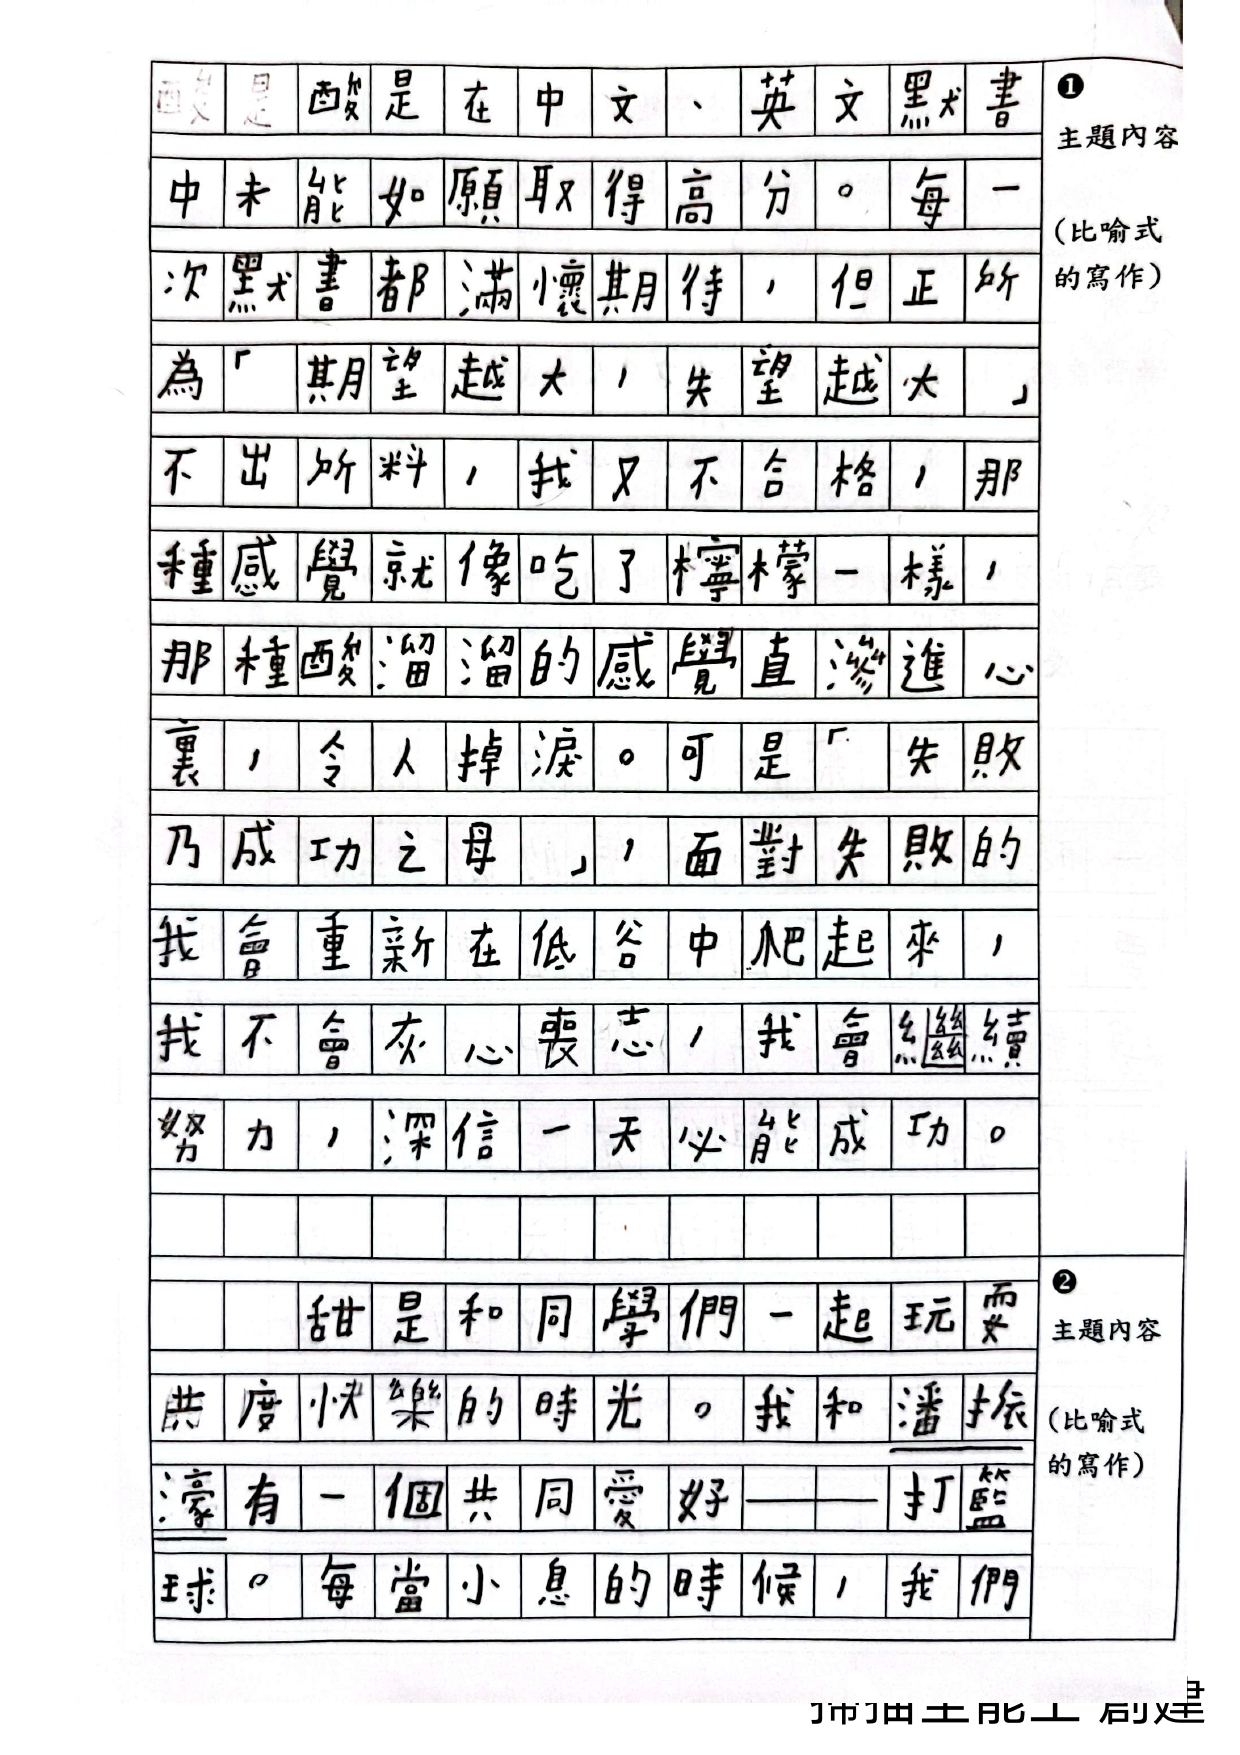 酸是在中文、英文默書
中未能如願取得高分。每一
次默書都滿懷期待，但正所
為「期望越大，失望越大」
不出所料，我又不合格，那
種感覺就像吃了檸檬一樣，
那種酸溜溜的感覺直滲進心
裏，令人掉淚。可是「失敗
乃成功之母」，面對失敗的
我會重新在低谷中爬起來，
我不會灰心喪志，我會繼續
努力，深信一天必能成功。
❶
主題內容
（比喻式
的寫作）
甜是和同學們一起玩耍
共度快樂的時光。我和潘振
濠有一個共同愛好——打籃
球。每當小息的時候，我們
❷
主題內容
（比喻式
的寫作）
掃描全能王 創建